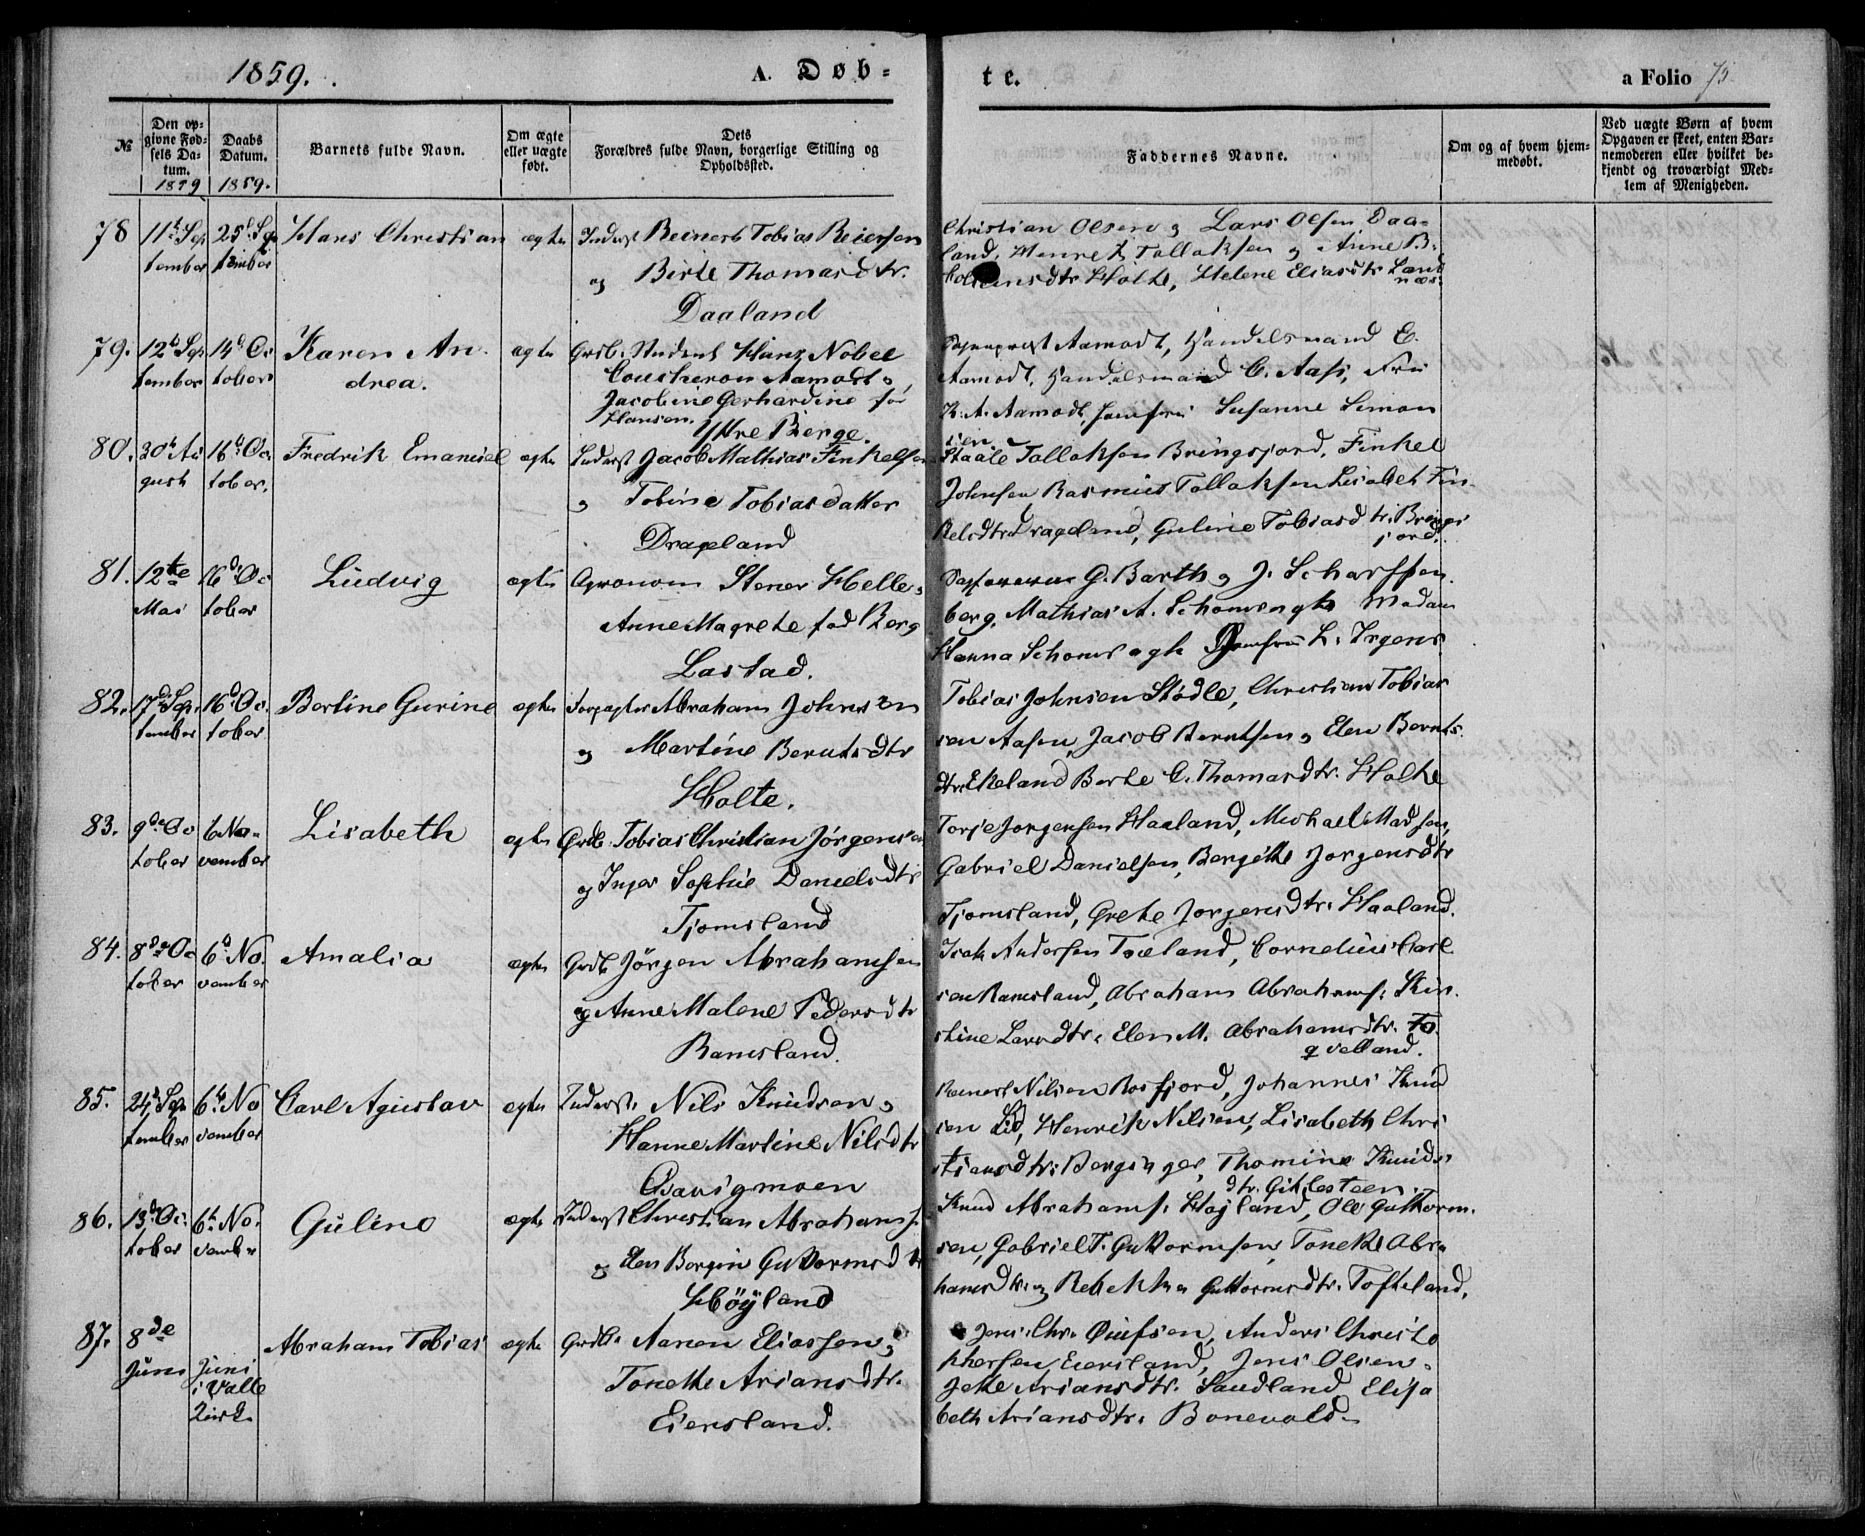 1859.
A. Døb-
te.
a Folio 75
№
Den op-
givne Fød-
sels Da-
tum.
1859
Daabs
Datum.
1859.
Barnets fulde Navn.
Om ægte
eller uægte
født.
Dets
Forældres fulde Navn, borgerlige Stilling og
Opholdssted.
Faddernes Navne.
Om og af hvem hjem-
medøbt.
Ved uægte Børn af hvem
Opgaven er skeet, enten Bar-
nemoderen eller hvilket be-
kjendt og troværdigt Med-
lem af Menigheden.
78
11t Sep
tember
25d Sep
tember
Hans Christian
ægte
Inderst Reinert Tobias Reiersen
og Birte Thomasdtr.
Daaland
Christian Olsen og Lars Olsen Daa-
land, Tallaksen og Anne B.
Holte, Helene Eliasdtr Land
næs.
79.
12t Sep
tember
14d Oc
tober
Karen An
drea.
ægte
Grdb. Student Hans Nobel
Coucheron Aamodt og
Jacobine Gerhardine fød
Hansen. Ytre Berge.
Sogneprest Aamodt, Handelsmand E.
Aamodt, Handelsmand C. Aass, Fru
K. A. Aamodt, Jomfru Susanne Simon
sen
80.
30t Au
gust
16d Oc
tober.
Fredrik Emanuel
ægte
Inderst Jacob Mathias Finkelsen
og Tobine Tobiasdatter
Drageland
Staale Tallaksen Bringsjord, Finkel
Johnsen Rasmus Tallaksen Lisabet Fin
kelsdtr Drageland, Guline Tobiasdtr. Brings
jord.
81.
12te
Mai
16d Oc
tober
Ludvig
ægte
Agronom Stener Helle og
Anne Magrete fød Berg
Lastad.
G. Barth og J. Scharffen
berg, Mathias A. Madam
Hanna Jomfru L. Irgens
82.
17d Sep.
tember
16d Oc.
tober
Bertine Gurine
ægte
Forpagter Abraham Johnsen
og Martine Berntsdtr
Holte.
Tobias Johnsen Stødle, Christian Tobias
sen Aasen, Jacob Berntsen og Elen Bernts
dtr. Ekeland Berte C. Thomasdtr. Holte
83.
9de Oc
tober
6 No-
vember
Lisabeth
ægte
Grdb. Tobias Christian Jørgensen
og Inger Sophie Danielsdtr
Tjomsland
Torje Jørgensen Haaland, Michael Madsen,
Gabriel Danielsen, Bergitte Jørgensdtr
Tjomsland, Grete Jørgensdtr. Haaland.
84.
8de Oc
tober
6d No.
vember
Amalia
ægte
Grdb Jørgen Abrahamsen
og Anne Malene Pedersdtr
Ramsland.
Isak Andersen Cornelius Carl
sen Ramsland, Abraham Abrahams. Kin
stine Larsdtr. Elen M. Abrahamsdtr. To
85.
24d Sep
tember
6t No
vember
Carl Agustav
ægte
Inderst. Nils Knudsen og
Hanne Martine Nilsdtr
Qvavigmoen
Reinert Nilsen Rosfjord, Johannes Knud
sen Lid, Henrik Nilsen, Lisabeth Chri
stiansdtr. Thomine Knuds
dtr. Gitlesteen.
86.
13d Oc.
tober
6t No.
vember
Gulino
ægte
Inderst Christian Abrahams.
og Elen Bergin Guttormsdtr
Höyland
Knud Abrahams. Höjland, Ole Guttorm
sen, Gabriel T. Guttormsen, Tonette Abra
hamsdtr. og Rebekka Guttormsdtr. Tofteland.
87.
8de
Juni
Juni
i Valle
Kirke
Abraham Tobias
ægte
Grdb. Aanen Eliassen og
Tonette Ariansdtr.
Eiersland.
Jens Chr. Anders Christo
phersen Eiersland, Jens Olsen
Jette Ariansdtr. Sandland Elisa
beth Ariansdtr. Bonevold